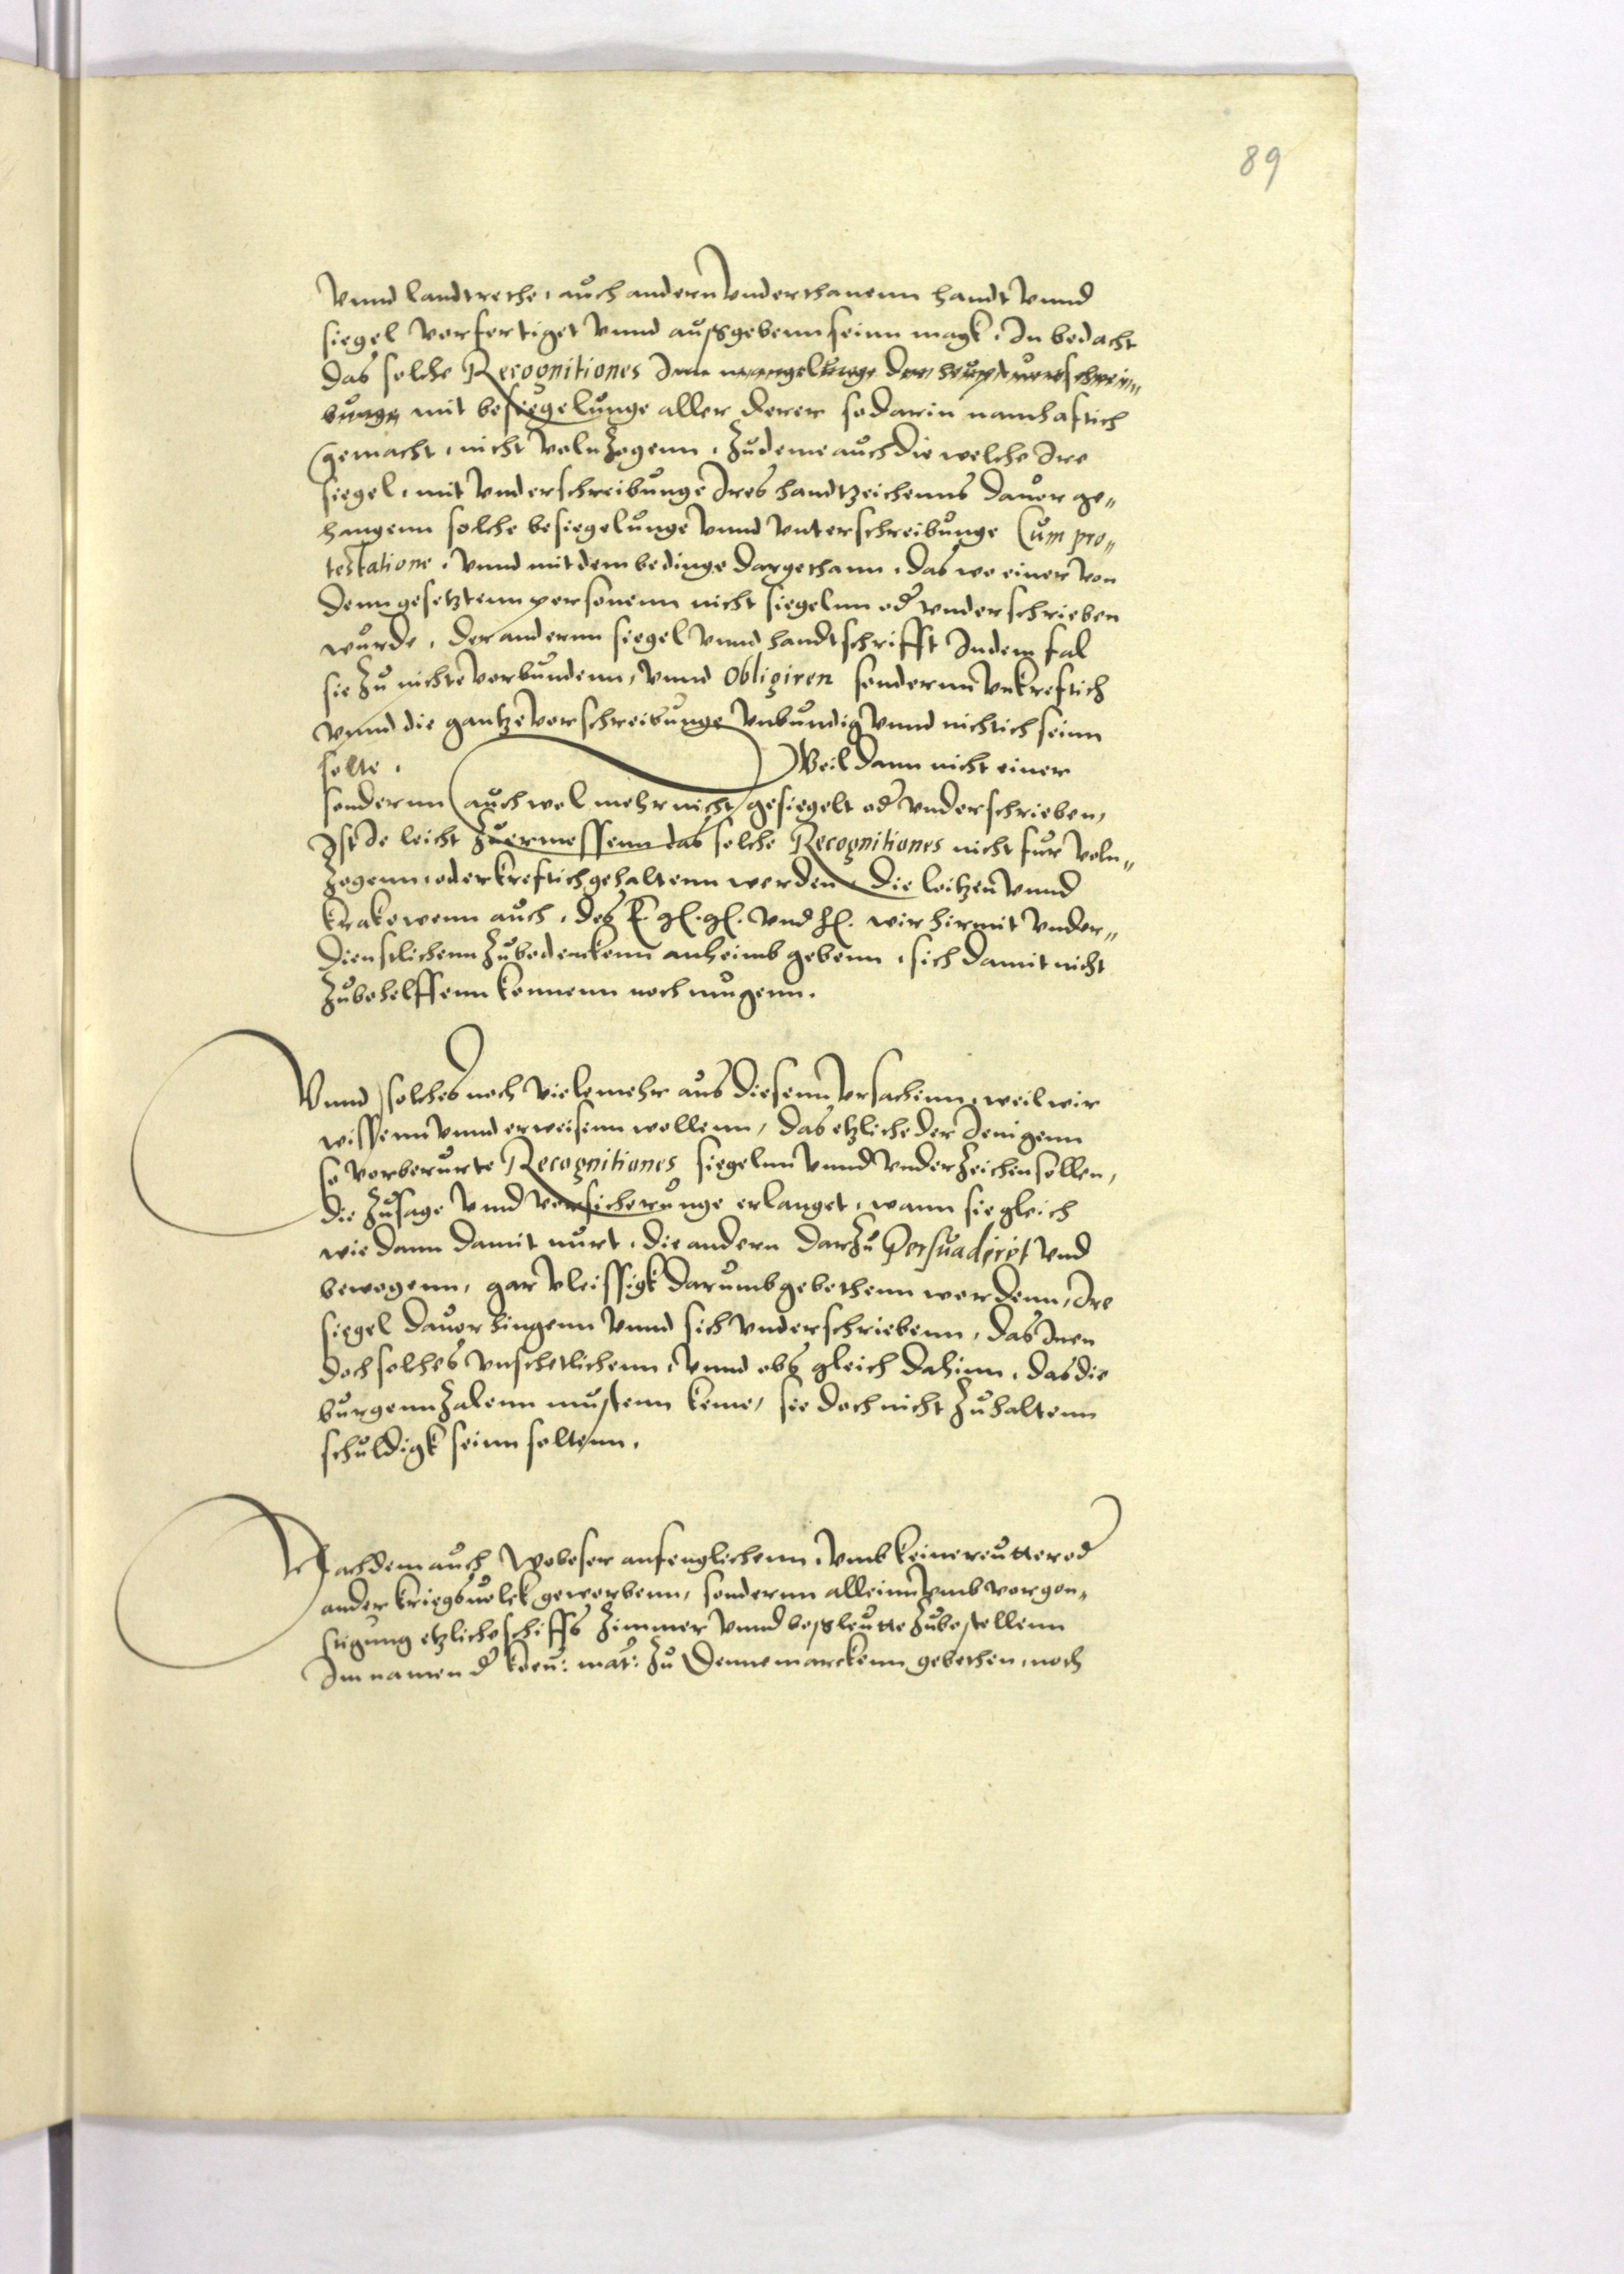 89
Vnnd landtrethe, auch andern Vnderthanenn handt Vnnd
siegel vorfertiget Vnnd außgebenn seinn magk, In bedacht
das solche Recognitiones Inn mangelunge der heuptvorschrei„
bunge mit besiegelunge aller derer so darin namhafftich
gemacht, nicht volnzogenn, Zudeme auch die welche Ire
siegel, mit Vnderschreibunge Ires handtzeichenns dauor ge„
hangenn solche besiegelunge Vnnd Vnterschreibunge Cum pro„
testatione, Vnnd mit dem bedinge dargethann, das wo einer von
denn gesetztenn personenn nicht siegelnn od Vnderschrieben
wurde, der anderen siegel Vnnd handtschrifft Indem fal
sie Zu nichte vorbundenn, Vnnd obligiren sondernn Vnkreftich
Vnnd die gantze vorschreibunge Vnbundig Vnnd nichtich seinn
solte. Weil dann nicht einer
sondernn (auch wol mehr nicht) gesiegelt od Vnderschrieben,
Ist de leicht Zuermessenn das solche Recognitiones nicht fur voln„
Zogenn, oder kreftich gehaltenn werden, die leitzen Vnnd
krakowenn auch, des E. gl. gl. Vnd hl. wir hirmit Vnder„
dienstlichenn Zubedenckenn anheimb gebenn, sich damit nicht
Zubehelffenn konnenn noch mugenn.
Vnnd solches noch viele mehr aus diesenn Vrsachenn, weil wir
wissenn Vnnd erweisenn wollenn, das etzliche der Jenigenn
so vorberurte Recognitiones siegelnn Vnnd Vnderzeichen sollen,
die Zusage Vnnd vorsicherunge erlanget, wann sie gleich
wie dann damit nurt, die andern darzu Persuadiret Vnd
bewogenn, gar vleissigk darumb gebethenn wordenn, Ire
siegel dauor hingenn Vnnd sich Vnderschriebenn, das Inen
doch solches Vnschetlichenn, Vnnd obs gleich dahinn, das die
burgenn Zalenn mustenn keme, sie doch nicht Zuhaltenn
schuldigk seinn soltenn.
Nachdem auch Wobeser anfenglichenn, Vmb keine reutter od
ander kriegsuolck geworbenn, sondernn alleinn Vmb vorgon„
stigung etzliche schiffs Zimmer Vnnd boßleutte Zubestellenn
Im namen d kon: mat: Zu Dennemarckenn gebethen, noch